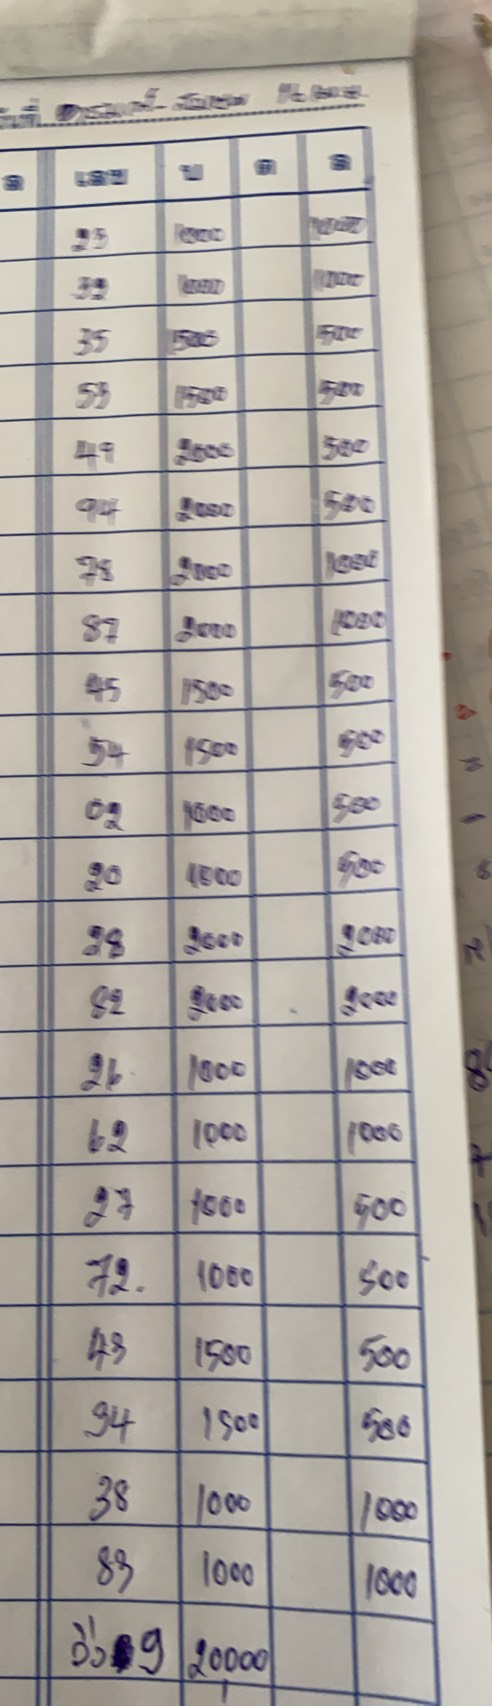 ล เลข บ ต ล
23 1000 1000
32 1000 1000
35 1500 500
53 1500 500
49 2000 500
94 2000 500
78 2000 1000
87 2000 1000
45 1500 500
54 1500 500
02 1000 500
20 1000 500
28 2000 2000
82 2000 2000
26 1000 1000
62 1000 1000
27 1000 500
72. 1000 500
43 1500 500
34 1500 500
38 1000 1000
83 1000 1000
วิ่ง 9 20000